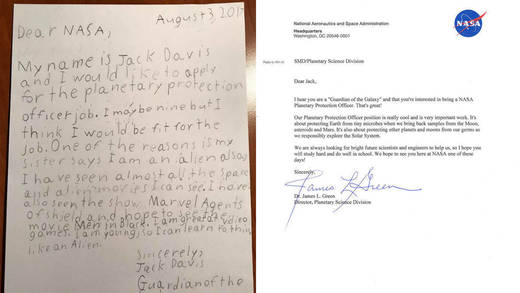 August 3, 201
Dear NASA,
My name is Jack Davis
and I would like to apply
for the planetary protection
officer job. I may be nine but I
think I would be fit for the
job. One of the reasons is my
sister says I am an alien also
I have seen almost all the space
and alien movies I can see. I have
also seen the show Marvel Agents
of shield and hope to see the
movie Men in Black. I am great at video
games. I am young, so I can learn to think
like an Alien.
Sincerely,
Jack Davis
Guardian of the
National Aeronautics and Space Administration
Headquarters
Washington, DC 20546-0001
NASA
SMD/Planetary Science Division
Dear Jack,
I hear you are a "Guardian of the Galaxy" and that you're interested in being a NASA
Planetary Protection Officer. That's great!
Our Planetary Protection Officer position is really cool and is very important work. It's
about protecting Earth from tiny microbes when we bring back samples from the Moon,
asteroids and Mars. It's also about protecting other planets and moons from our germs as
we responsibly explore the Solar System.
We are always looking for bright future scientists and engineers to help us, so I hope you
will study hard and do well in school. We hope to see you here at NASA one of these
days!
Sincerely,
James L Green
Dr. James L. Green
Director, Planetary Science Division